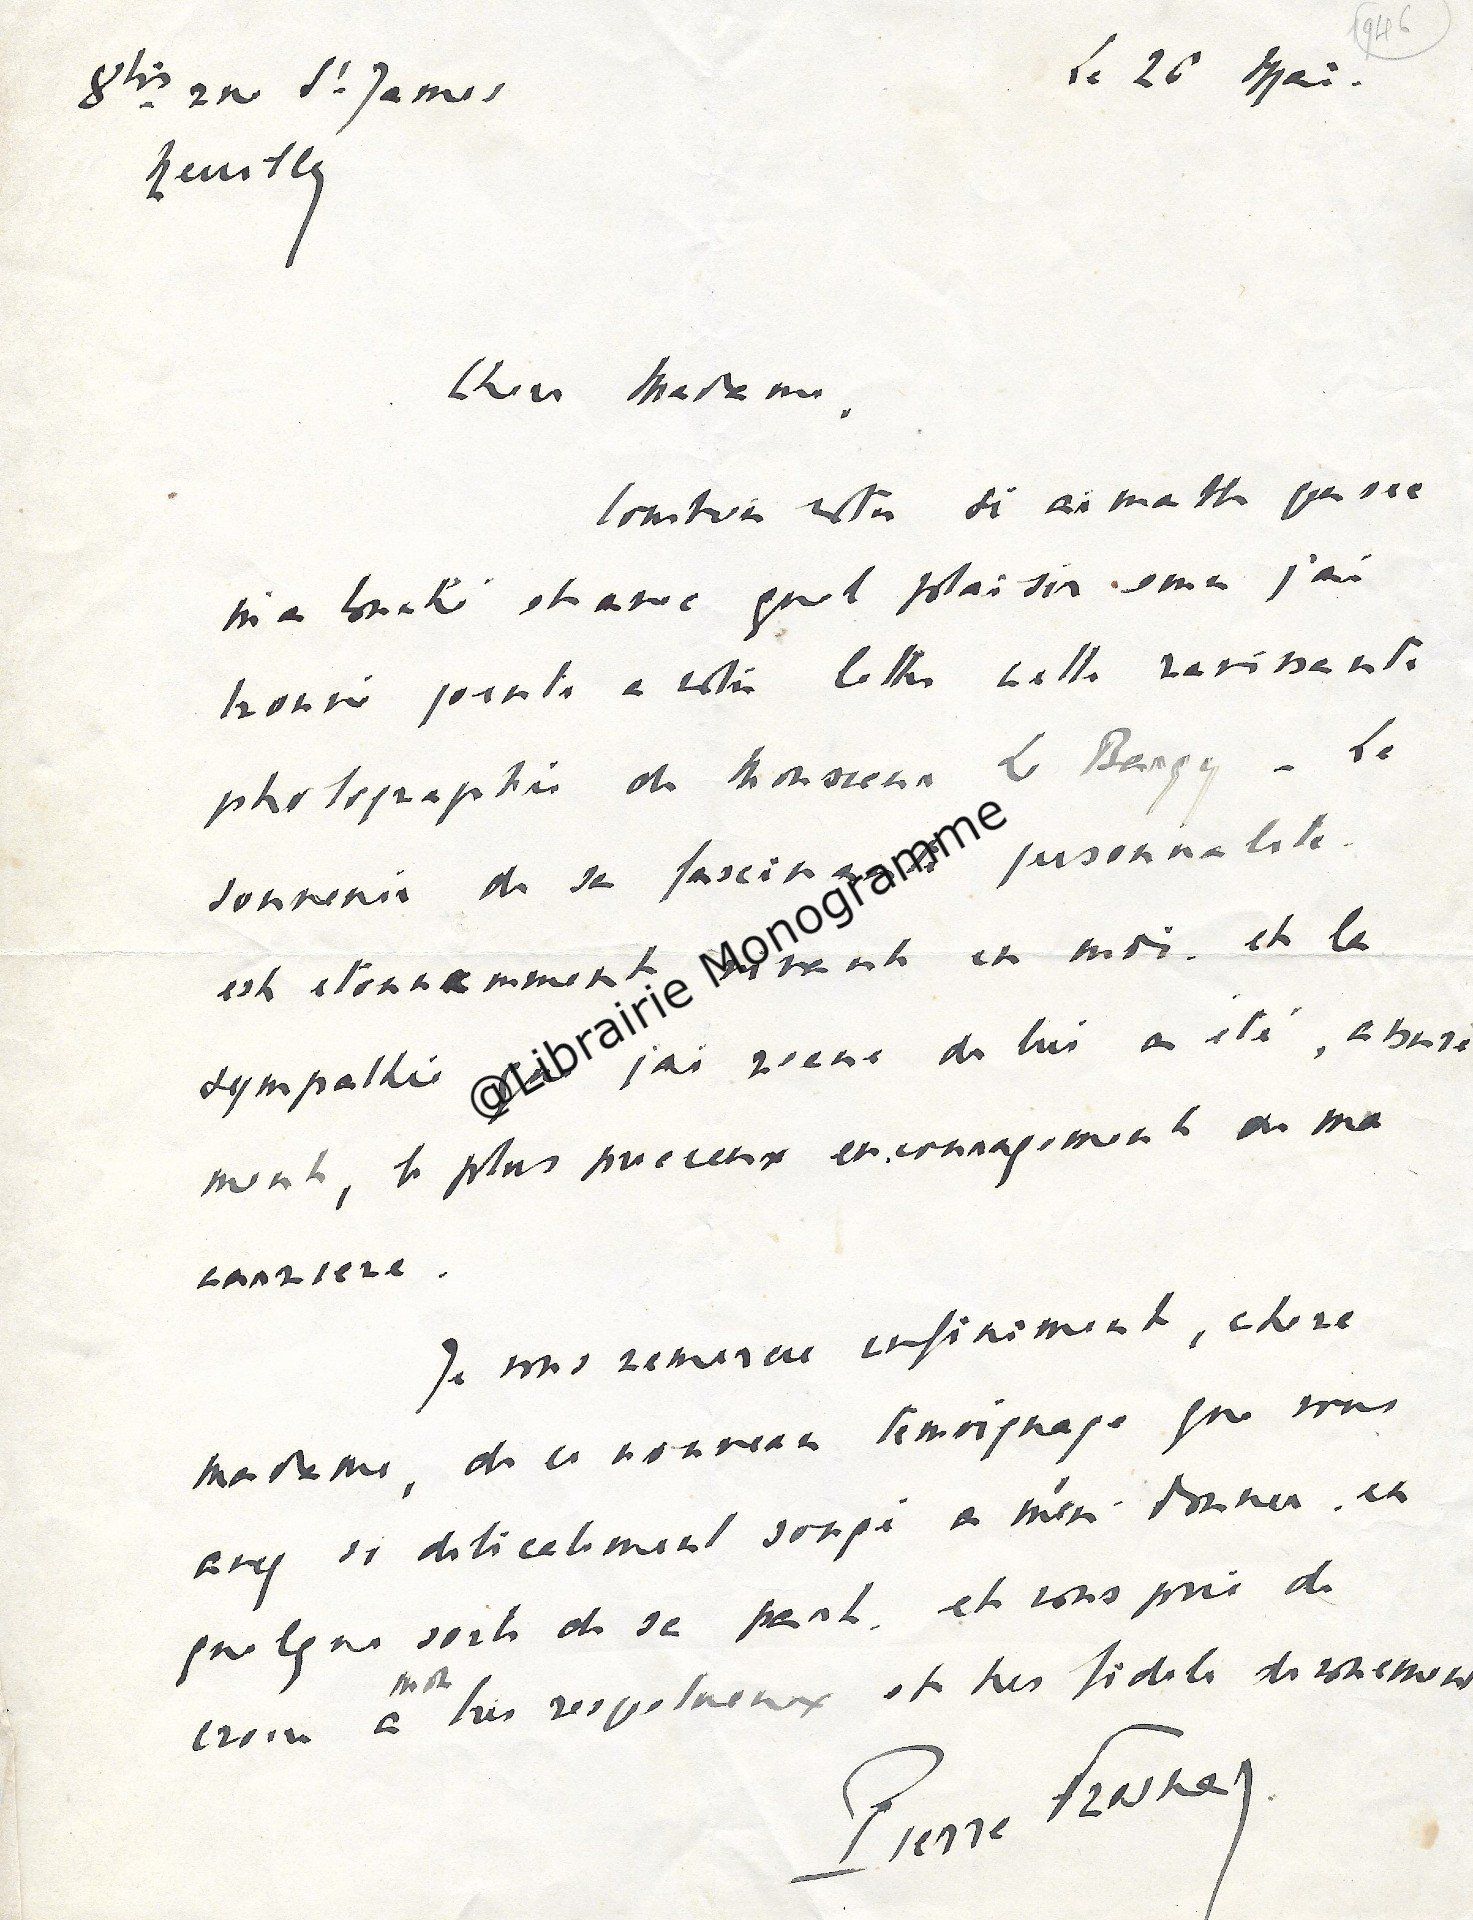 1946
8bis rue St James
Le 26 Mai.
Neuilly
Chere Madame,
Combien votre si aimable pensée
m'a touché et avec quel plaisir ému j'ai
trouvé jointe a votre lettre cette ravissante
photographie de Monsieur Le Bargy - Le
souvenir de sa fascinante personnalité.
est etonnamment vivant en moi. et la
sympathie que j'ai recue de lui a été, assuré
ment, le plus precieux encouragement de ma
carriere.
Je vous remercie infiniment, chere
madame, de ce nouveau temoignage que vous
avez si delicatement songé a m'en donner. en
quelque sorte de sa part. et vous prie de
croire a mon tres respectueux et tres fidele devouement
Pierre Fresnay.
@Librairie Monogramme